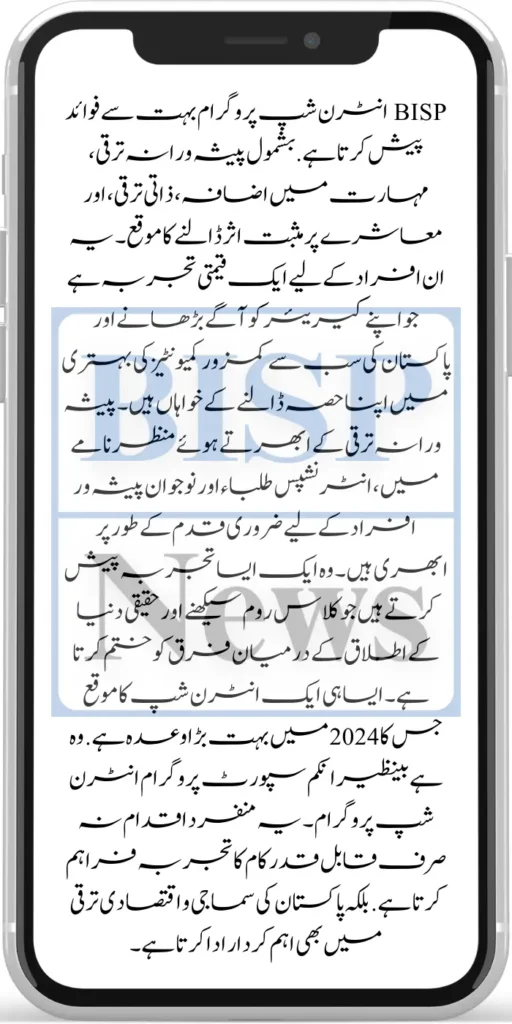 BISP انٹرن شپ پروگرام بہت سے فوائد
پیش کرتا ہے. بشمول پیشہ ورانہ ترقی،
مہارت میں اضافہ، ذاتی ترقی، اور
معاشرے پر مثبت اثر ڈالنے کا موقع۔ یہ
ان افراد کے لیے ایک قیمتی تجربہ ہے
جو اپنے کیریئر کو آگے بڑھانے اور
پاکستان کی سب سے کمزور کمیونٹیز کی بہتری
میں اپنا حصہ ڈالنے کے خواہاں ہیں۔ پیشہ
ورانہ ترقی کے ابھرتے ہوئے منظر نامے
میں، انٹرنشپس طلباء اور نوجوان پیشہ ور
افراد کے لیے ضروری قدم کے طور پر
ابھری ہیں۔ وہ ایک ایسا تجربہ پیش
کرتے ہیں جو کلاس روم سیکھنے اور حقیقی دنیا
کے اطلاق کے درمیان فرق کو ختم کرتا
ہے۔ ایسا ہی ایک انٹرن شپ کا موقع
جس کا 2024 میں بہت بڑا وعدہ ہے. وہ
ہے بینظیر انکم سپورٹ پروگرام انٹرن
شپ پروگرام۔ یہ منفرد اقدام نہ
صرف قابل قدر کام کا تجربہ فراہم
کرتا ہے. بلکہ پاکستان کی سماجی و اقتصادی ترقی
میں بھی اہم کردار ادا کرتا ہے۔
BISP
News